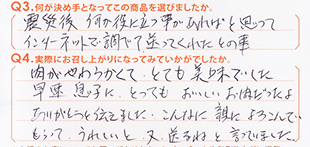 Q3.何が決め手となってこの商品を選びましたか。
震災後 何か役に立つ事があればと思って
インターネットで調べて送ってくれたとの事
Q4.実際にお召し上がりになってみていかがでしたか。
肉がやわらかくて、とても美味でした
早速 息子に、とっても おいしいお肉だったよ
ありがとうと伝えました。こんなに 親によろこんで
もらって、うれしいと、又、送るねと言っていました。